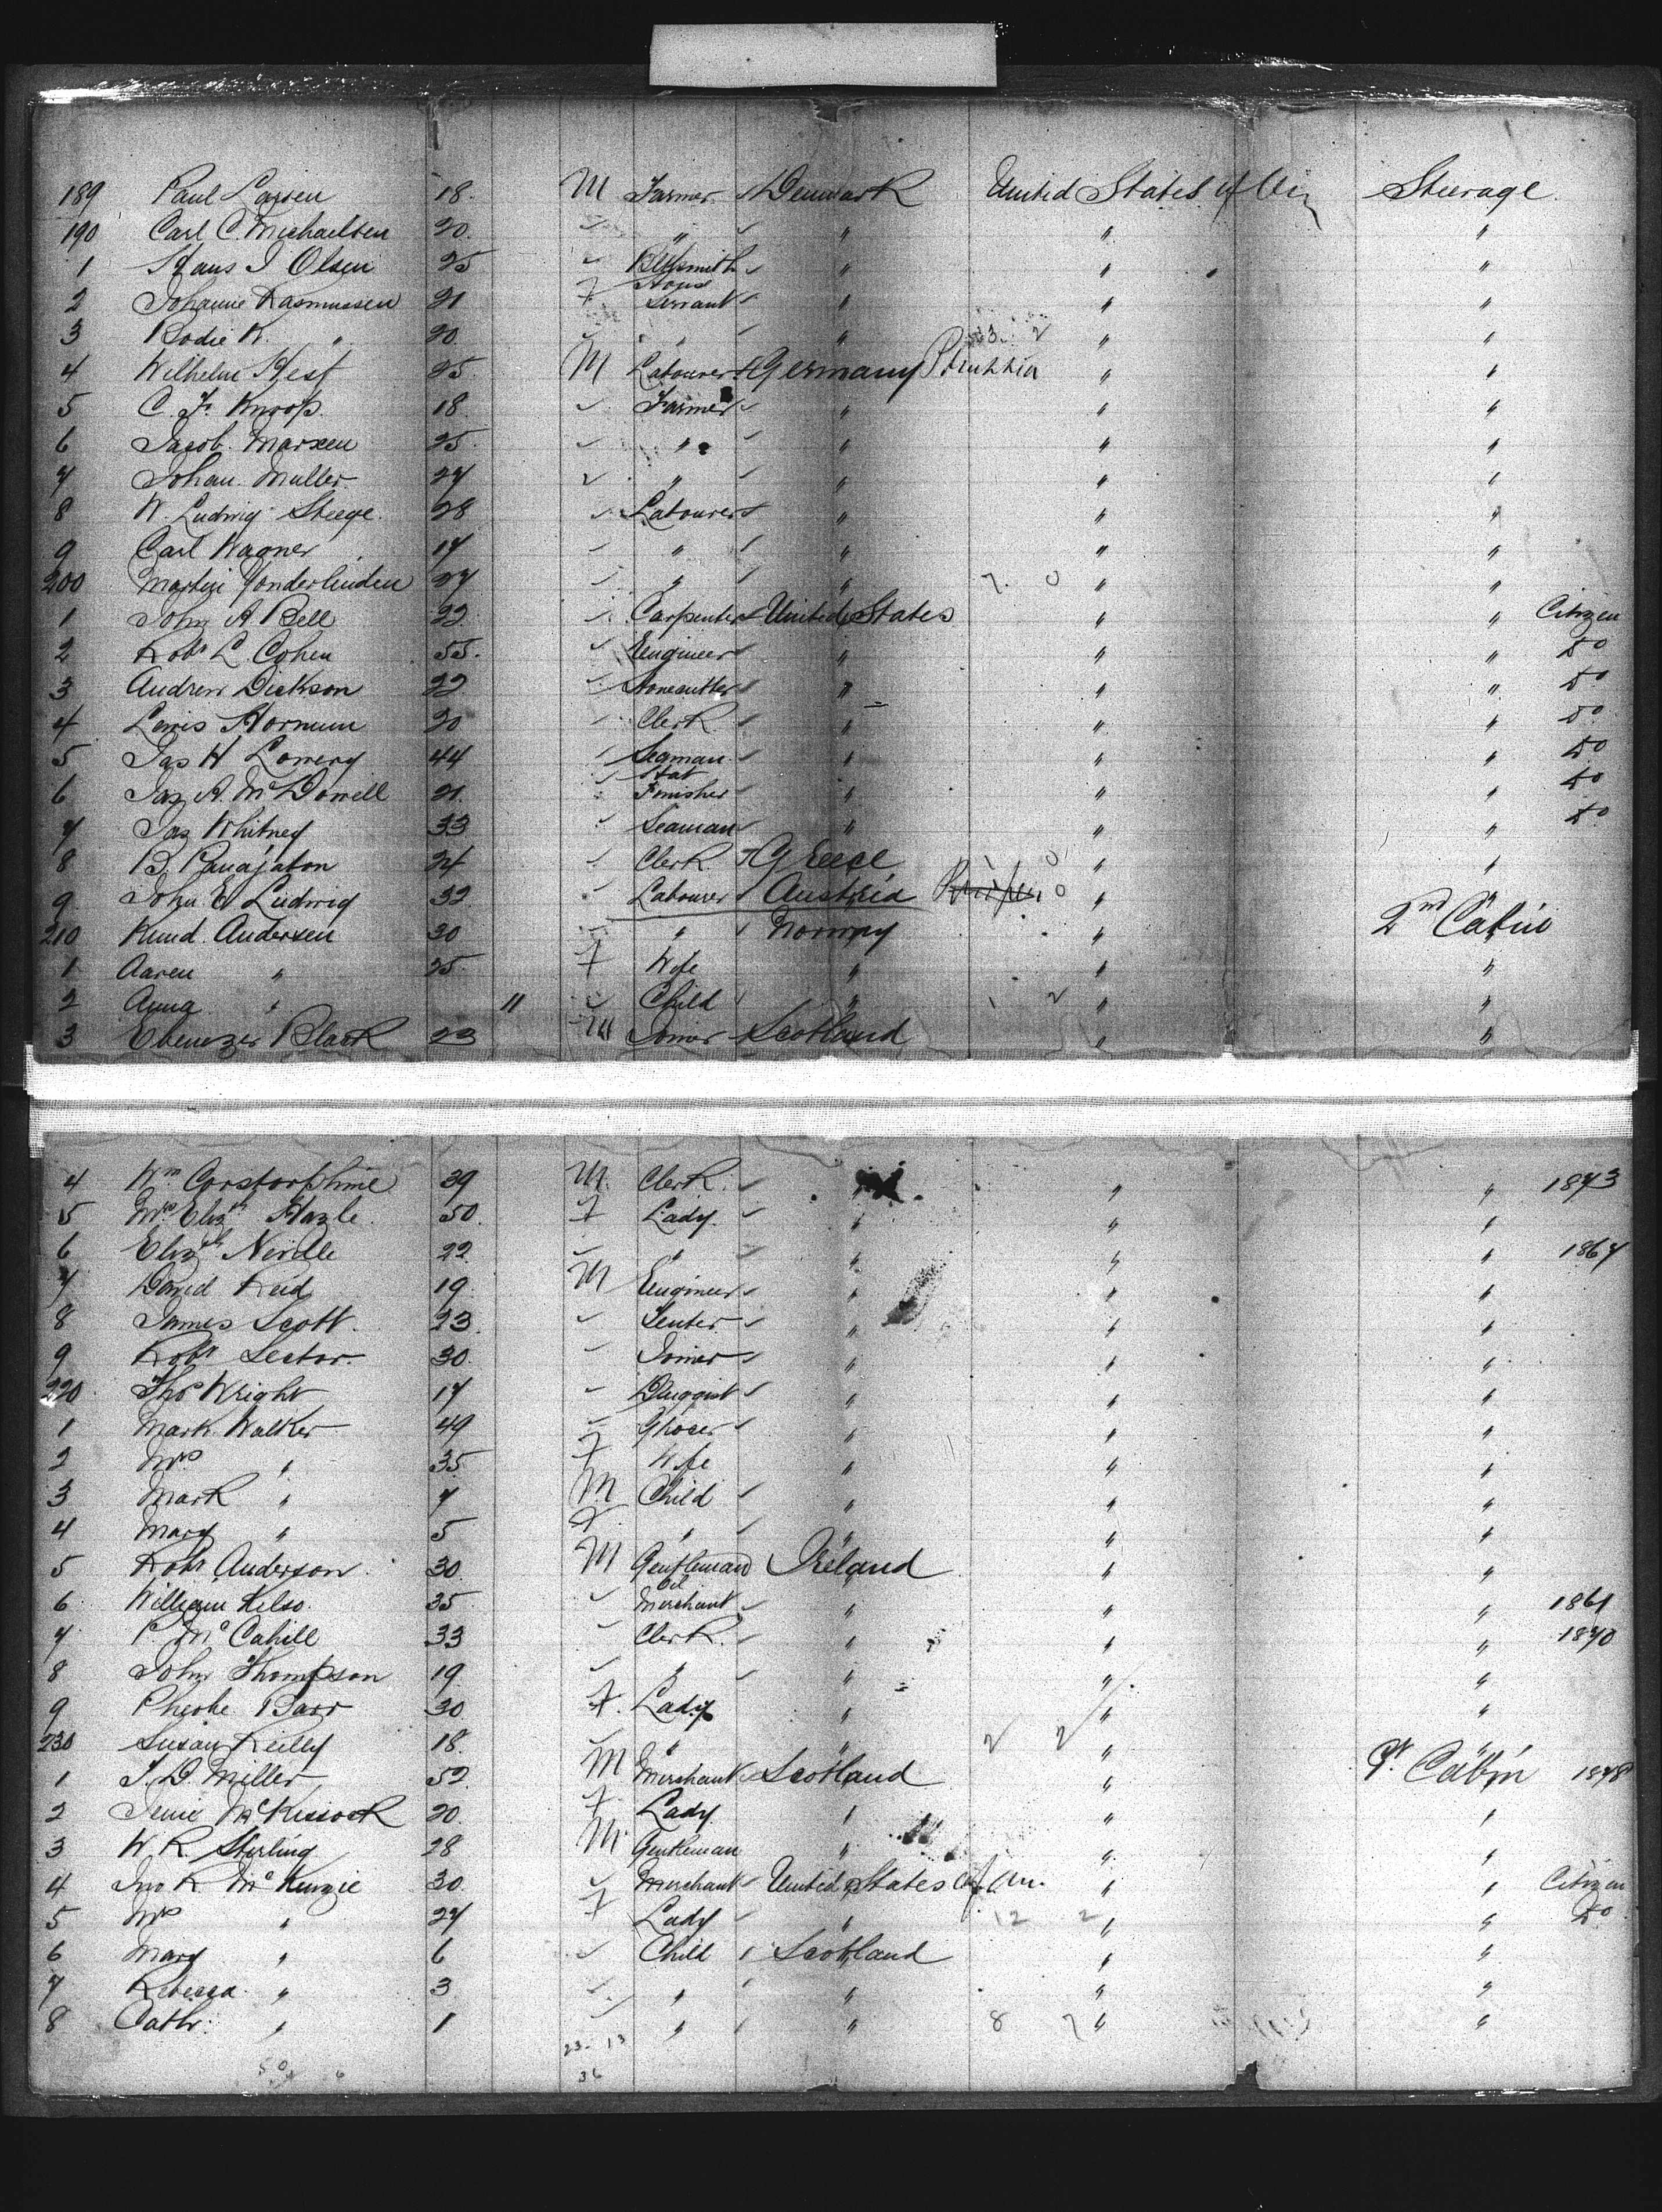 189 Paul Larsen 18. M Farmer Denmark United States of Steerage
190 Carl C. Michaelsen 20. " " " "
1 Hans J Olsen 25 Blksmith " " "
2 Johanne Rasmussen 21 F House Servant " " "
3 Bodie K. " 20 " " " "
4 Wilhelm Hest 25 M Labourer Germany Prussia " "
5 C. F. Knoop. 18. Farmer " " "
6 Jacob Marxen 25. " " " "
7 Johan Muller 27 " " " "
8 W. Ludwig Steege. 28 Labourer " " "
9 Carl Wagner 17 " " " "
200 Martin Vonderlinden 27 " " 7. 0 " "
1 John A Bell 22. Carpenter United States " " Citizen
2 Robt L. Cohen 55. Engineer " " " Do
3 Andrew Dickson 22 Stonecutter " " " Do
4 Lewis Hornum 20 Clerk " " " Do
5 Jas H Lowery 44 Seaman " " " Do
6 Jas A. McDowell 21. Hat Finisher " " " Do
7 Jas Whitney 33 Seaman " " " Do
8 B. Panajaton 24 Clerk Greece " "
9 John E Ludwig 32 Labourer Austria 0 " "
210 Knud. Andersen 30 " Norway " 2nd Cabin
1 Aaren " 25. F Wife " " "
2 Anna " 11 Child " 1 2 " "
3 Ebenezer Black 23 M Joiner Scotland " "
4 Wm Corstorphine 39 M. Clerk " " " 1873
5 Mrs Elizth Hazle 50. F Lady " " "
6 Elizth Neville 22 " " " " 1867
7 David Reid 19. M Engineer " " "
8 James Scott. 23. " " "
9 Robt Lector. 30. Joiner " " "
220 Thos Wright 17 Druggist " " "
1 Mark Walker 49 Grocer " " "
2 Mrs " 35 F Wife " " "
3 Mark " 7 M Child " " "
4 Mary " 5 F. " " " "
5 Robt Anderson. 30. M Gentleman Ireland " "
6 William Kelso. 35 Oil Merchant " " " 1861
7 P. McCahill 33 Clerk. " " " 1870
8 John Thompson 19. " " " "
9 Phebe Barr 30. F. Lady " " "
230 Susan Reilly 18. " " 2 2 " "
1 J. D. Miller 52. M Merchant Scotland " 1st Cabin 1878
2 Jenie McKissock 20. F Lady " " "
3 W R. Stirling 28 M Gentleman " " "
4 Jno R McKenzie 30. Merchant United States of Am. " " Citizen
5 Mrs " 27 F Lady " 12 2 " " Do
6 Mary " 6 Child Scotland " "
7 Rebecca. " 3 " " " "
8 Cathr. " 1 " " 8 7 " "
23. 13
36